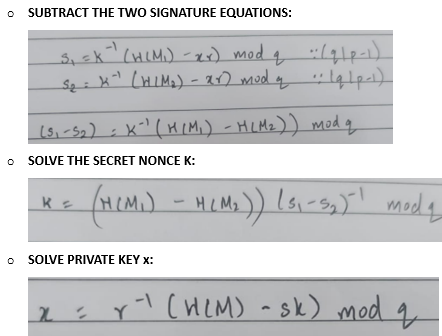 SUBTRACT THE TWO SIGNATURE EQUATIONS:
s₁ = k⁻¹ (H(M₁) - xr) mod q ∵ (q|p-1)
s₂ = k⁻¹ (H(M₂) - xr) mod q ∵ (q|p-1)
(s₁-s₂) = k⁻¹ (H(M₁) - H(M₂)) mod q
SOLVE THE SECRET NONCE K:
k = (H(M₁) - H(M₂)) (s₁-s₂)⁻¹ mod q
SOLVE PRIVATE KEY x:
x = r⁻¹ (H(M) - sk) mod q